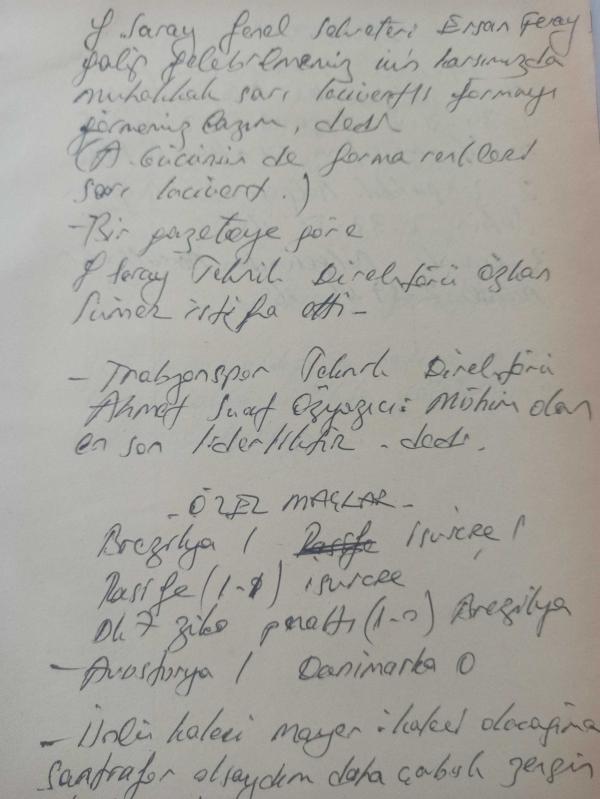 G. Saray Genel Sekreteri Ersan Feray
galip gelebilmemiz için karşımızda
muhakkak sarı lacivertli formayı
görmemiz lazım, dedi
(A. Gücünün de forma renkleri
sarı lacivert.)
- Bir gazeteye göre
G Saray Teknik Direktörü Özkan
Sümer istifa etti -
- Trabzonspor Teknik Direktörü
Ahmet Suat Özyazıcı: Mühim olan
en son liderliktir. dedi.
- ÖZEL MAÇLAR -
Brezilya 1 İsviçre 1
(1-1) isviçre
Dk 7 ziko penaltı (1-0) Brezilya
- Avusturya 1 Danimarka 0
- Ünlü kaleci mayer: kaleci olacağıma
santrafor olsaydım daha çabuk zengin